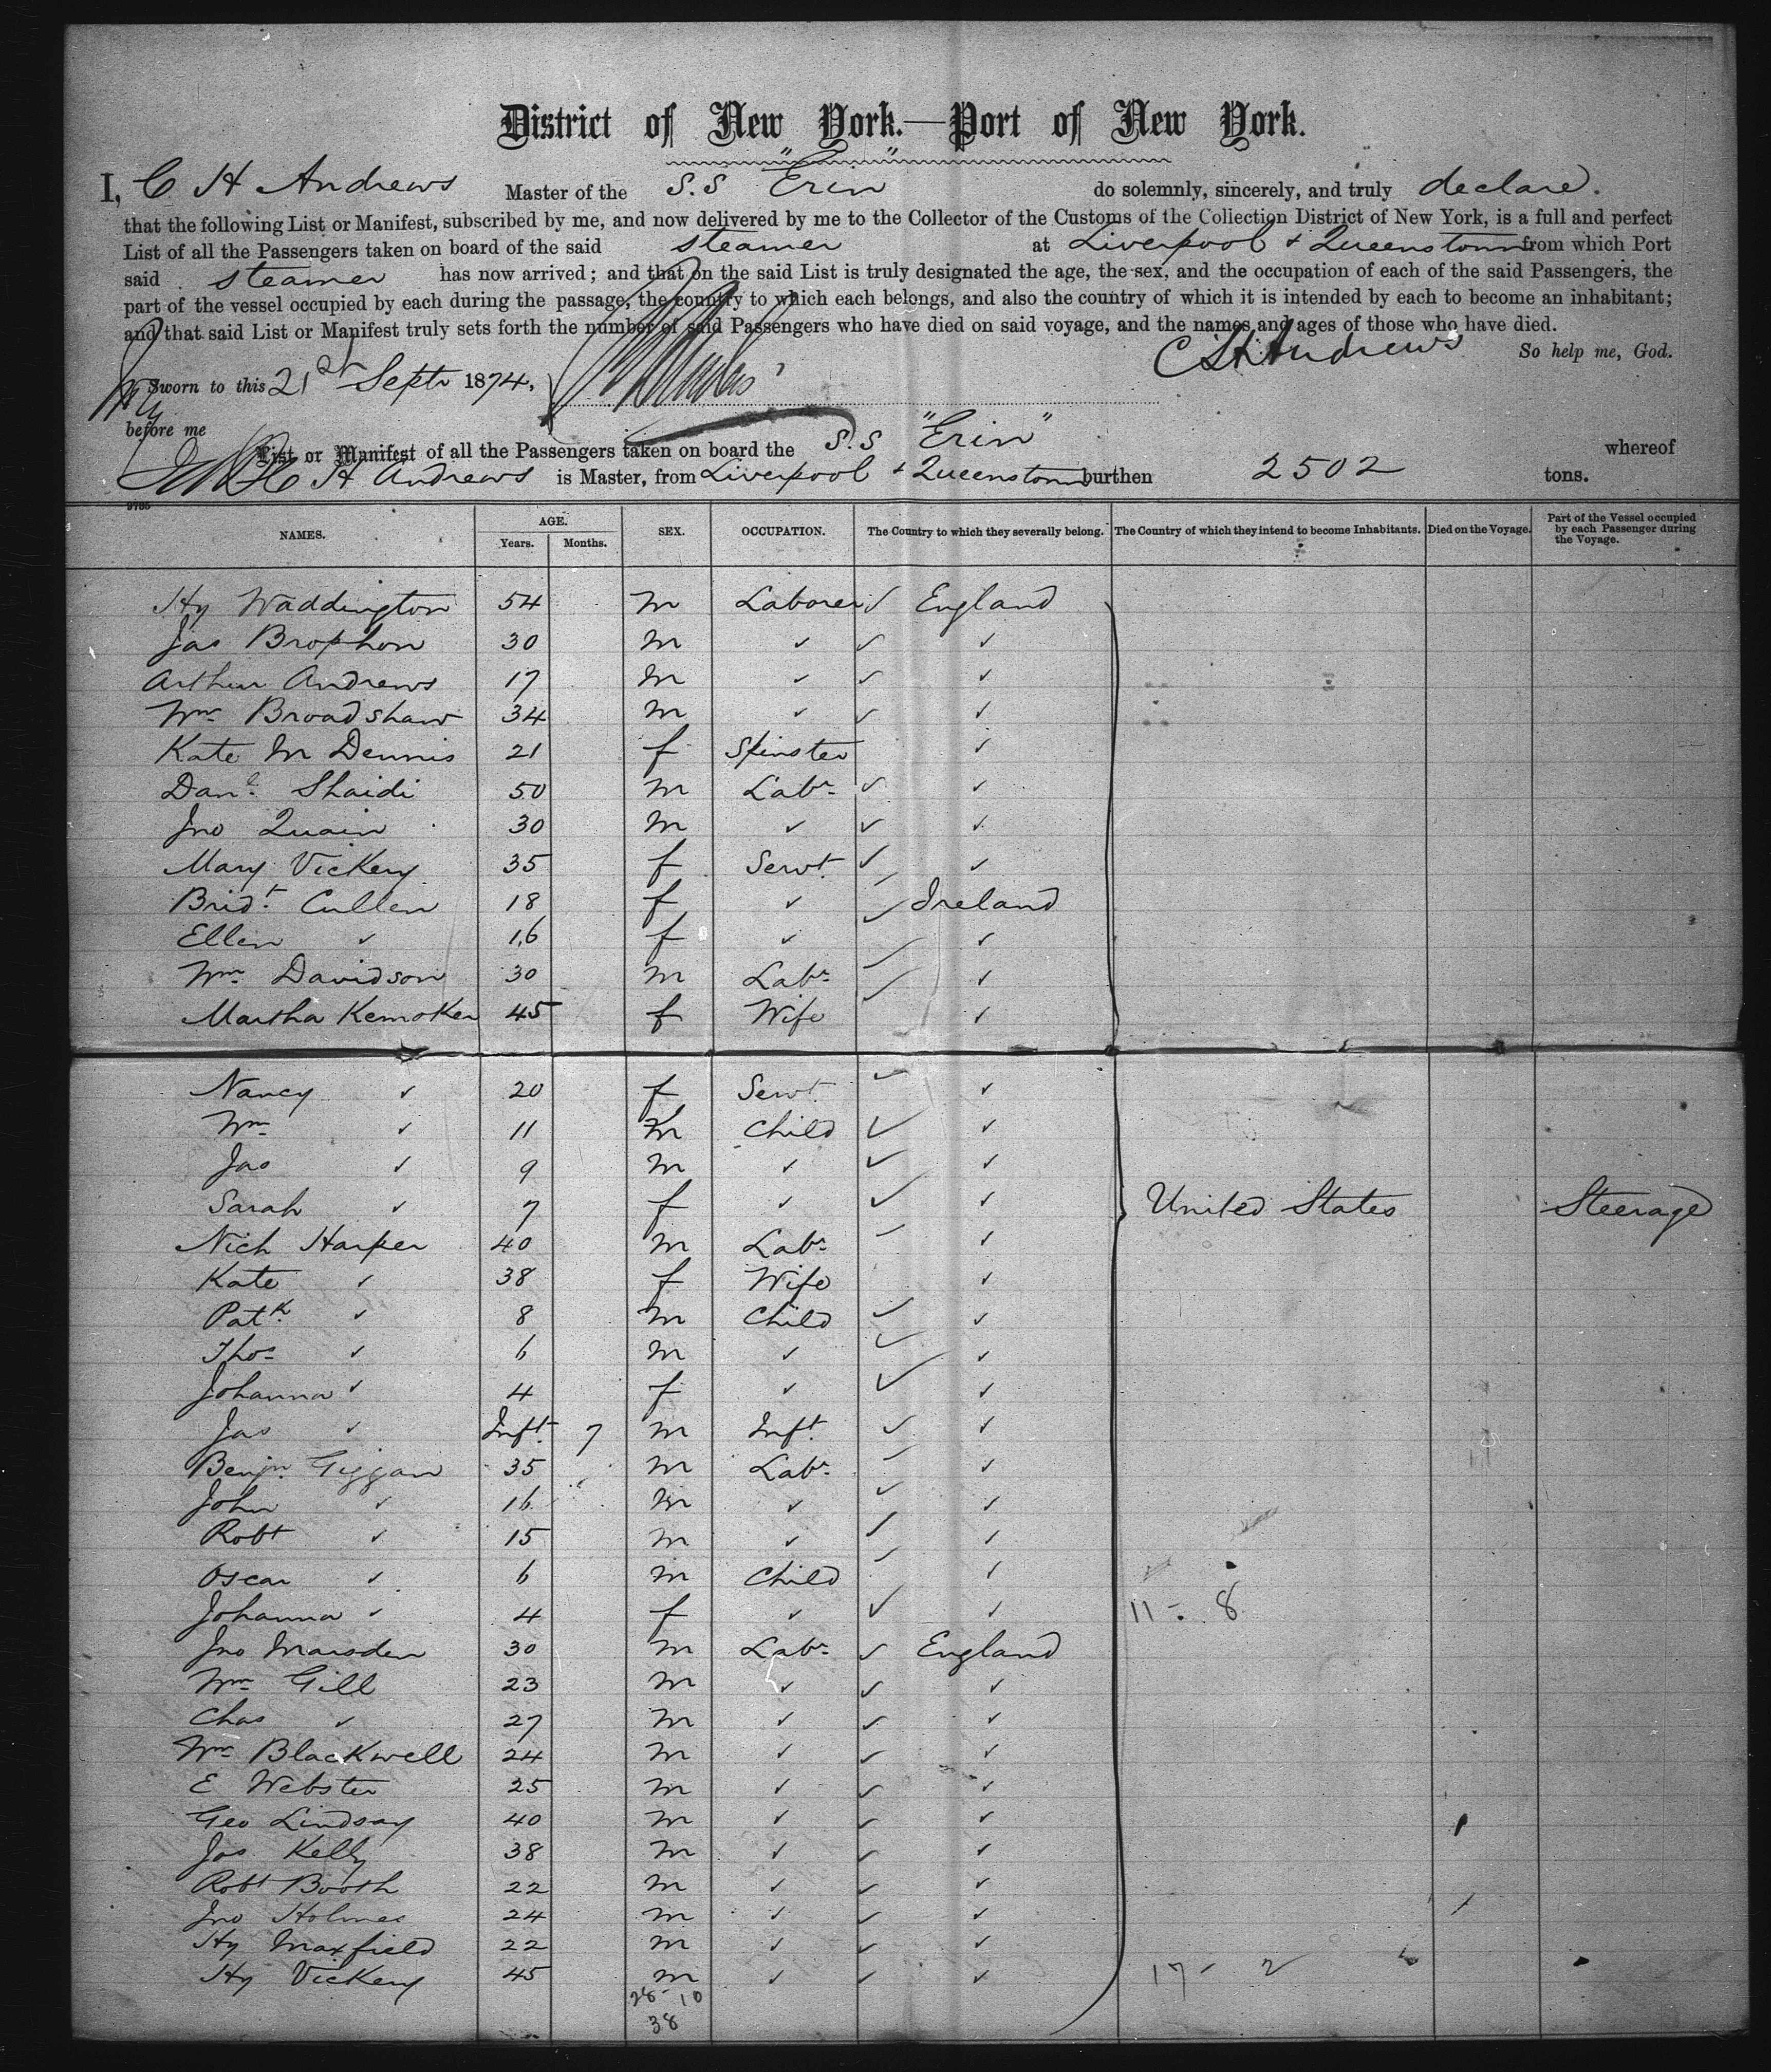 District of New York.—Port of New York.
I, C H Andrews Master of the S.S "Erin" do solemnly, sincerely, and truly declare.
that the following List or Manifest, subscribed by me, and now delivered by me to the Collector of the Customs of the Collection District of New York, is a full and perfect
List of all the Passengers taken on board of the said steamer at Liverpool + Queenstown from which Port
said steamer has now arrived; and that on the said List is truly designated the age, the sex, and the occupation of each of the said Passengers, the
part of the vessel occupied by each during the passage, the country to which each belongs, and also the country of which it is intended by each to become an inhabitant;
and that said List or Manifest truly sets forth the number of said Passengers who have died on said voyage, and the names and ages of those who have died.
So help me, God.
C H Andrews
Sworn to this 21st Sept 1874,
before me
List or Manifest of all the Passengers taken on board the S.S "Erin" whereof
C H Andrews is Master, from Liverpool + Queenstown burthen 2502 tons.
9735
NAMES. AGE. Years. Months. SEX. OCCUPATION. The Country to which they severally belong. The Country of which they intend to become Inhabitants. Died on the Voyage. Part of the Vessel occupied by each Passenger during the Voyage.
Hy Waddington 54 M Laborer ✓ England
Jas Brophon 30 M ✓ ✓ ✓
Arthur Andrews 17 M ✓ ✓ ✓
Wm Broadshaw 34 M ✓ ✓ ✓
Kate M Dennis 21 f Spinster ✓
Danl. Shaidi 50 M Labr ✓ ✓
Jno Quain 30 M ✓ ✓ ✓
Mary Vickery 35 f Servt. ✓ ✓
Bridt. Cullen 18 f ✓ ✓ Ireland
Ellen ✓ 16 f ✓ ✓ ✓
Wm Davidson 30 M Labr ✓ ✓
Martha Kemoker 45 f Wife ✓
Nancy ✓ 20 f Servt ✓ ✓
Wm ✓ 11 M Child ✓ ✓
Jas ✓ 9 M ✓ ✓ ✓
Sarah ✓ 7 f ✓ ✓ ✓ United States Steerage
Nich Harper 40 M Labr ✓ ✓
Kate ✓ 38 f Wife ✓
Patk. ✓ 8 M Child ✓ ✓
Thos ✓ 6 M ✓ ✓ ✓
Johanna ✓ 4 f ✓ ✓ ✓
Jas ✓ Inft. 7 M Inft. ✓ ✓
Benjn Giggan 35 M Labr ✓ ✓
John ✓ 16 M ✓ ✓ ✓
Robt ✓ 15 M ✓ ✓ ✓
Oscar ✓ 6 M Child ✓ ✓
Johanna ✓ 4 f ✓ ✓ ✓ 11 - 8
Jno Marsden 30 M Labr ✓ England
Wm Gill 23 M ✓ ✓ ✓
Chas ✓ 27 M ✓ ✓ ✓
Wm Blackwell 24 M ✓ ✓ ✓
E Webster 25 M ✓ ✓ ✓
Geo Lindsay 40 M ✓ ✓ ✓
Jas Kelly 38 M ✓ ✓ ✓
Robt Booth 22 M ✓ ✓ ✓
Jno Holmes 24 M ✓ ✓ ✓
Hy Maxfield 22 M ✓ ✓ ✓
Hy Vickery 45 M ✓ ✓ ✓ 17 - 2
28 - 10
38